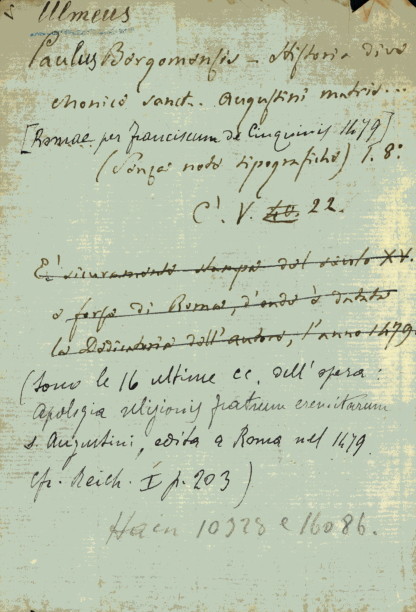 Ulmeus
Paulus Bergomensis - Historia divae
Monice sanct. Augustini matris...
[Romae per Franciscum de Cinquinis 1479]
(Senza note tipografiche) I. 8:
C. V. 40. 22.
E' sicuramente stampa del secolo XV.
e forse di Roma, d'onde è datata
la Dedicatoria dell'autore, l'anno 1479
(Sono le 16 ultime cc. dell'opera:
Apologia religionis fratrum eremitarum
s. Augustini, edita a Roma nel 1479
cfr. Reich. I p. 203)
Hain 10328 e 16086.